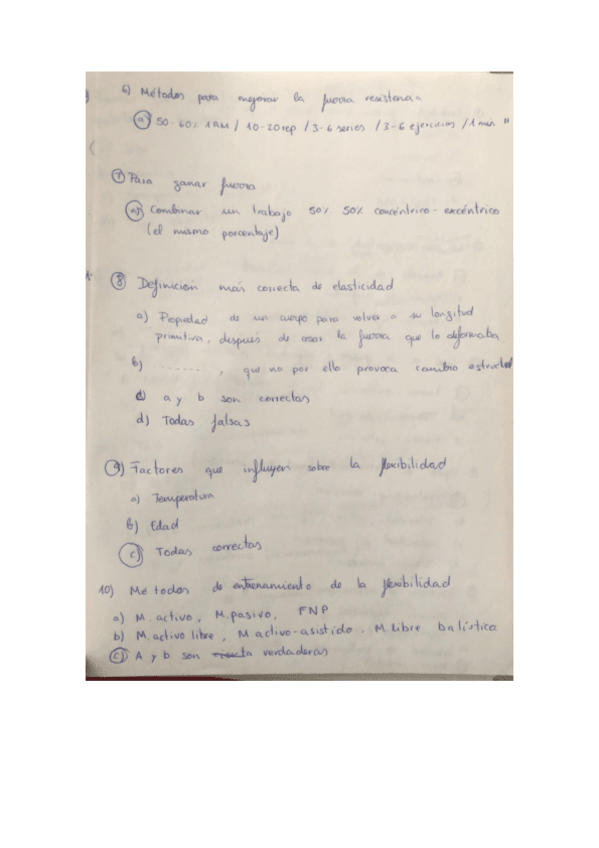 6) Métodos para mejorar la fuerza resistencia
a) 50-60% 1RM / 10-20 rep / 3-6 series / 3-6 ejercicios / 1 min
7) Para ganar fuerza
a) Combinar un trabajo 50% 50% concéntrico-excéntrico
(el mismo porcentaje)
8) Definición más correcta de elasticidad
a) Propiedad de un cuerpo para volver a su longitud
primitiva, después de cesar la fuerza que lo deformaba
b) ........, que no por ello provoca cambio estructural
c) a y b son correctas
d) Todas falsas
9) Factores que influyen sobre la flexibilidad
a) Temperatura
b) Edad
c) Todas correctas
10) Metodos de entrenamiento de la flexibilidad
a) M. activo, M. pasivo, FNP
b) M. activo libre, M activo-asistido, M. libre balística
c) A y b son verdaderas